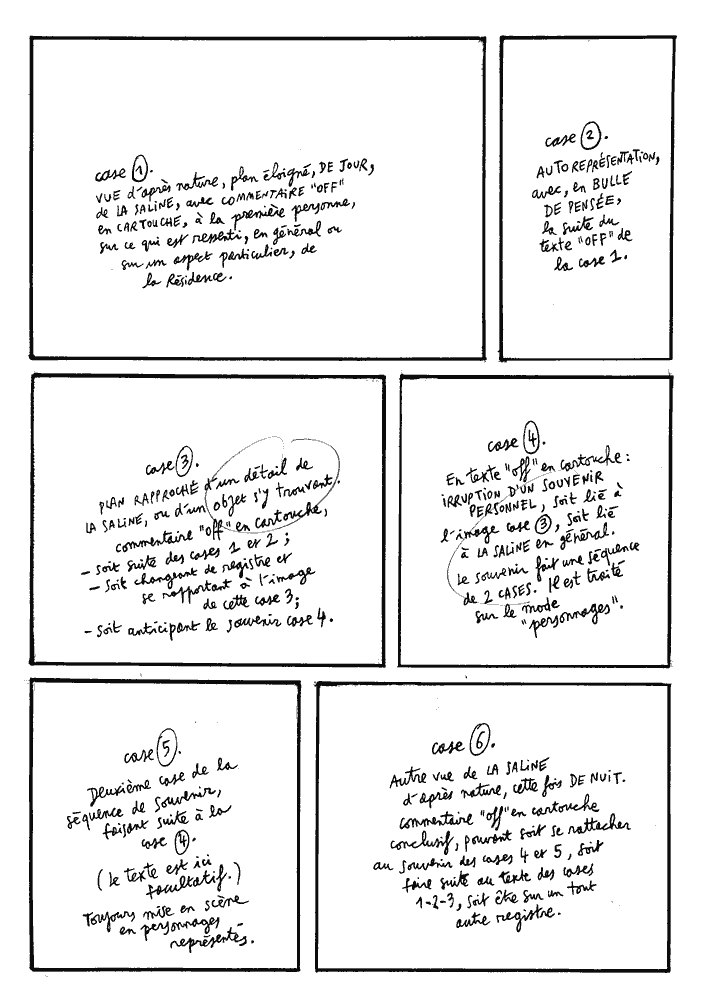 case 1.
VUE d'après nature, plan éloigné, DE JOUR,
de LA SALINE, avec COMMENTAIRE "OFF"
en CARTOUCHE, à la première personne,
sur ce qui est ressenti, en général ou
sur un aspect particulier, de
la Résidence.
case 2.
AUTOREPRÉSENTATION,
avec, en BULLE
DE PENSÉE,
la suite du
texte "OFF" de
la case 1.
case 3.
PLAN RAPPROCHÉ d'un détail de
LA SALINE, ou d'un objet s'y trouvant.
commentaire "off" en cartouche,
- soit suite des cases 1 et 2 ;
- soit changeant de registre et
se rapportant à l'image
de cette case 3;
- soit anticipant le souvenir case 4.
case 4.
En texte "off" en cartouche :
IRRUPTION D'UN SOUVENIR
PERSONNEL, soit lié à
l'image case 3, soit lié
à LA SALINE en général.
Le souvenir fait une séquence
de 2 CASES. Il est traité
sur le mode
"personnages".
case 5.
Deuxième case de la
séquence de souvenir,
faisant suite à la
case 4.
(Le texte est ici
facultatif.)
Toujours mise en scène
en personnages
représentés.
case 6.
Autre vue de LA SALINE
d'après nature, cette fois DE NUIT.
commentaire "off" en cartouche
conclusif, pouvant soit se rattacher
au souvenir des cases 4 et 5, soit
faire suite au texte des cases
1-2-3, soit être sur un tout
autre registre.